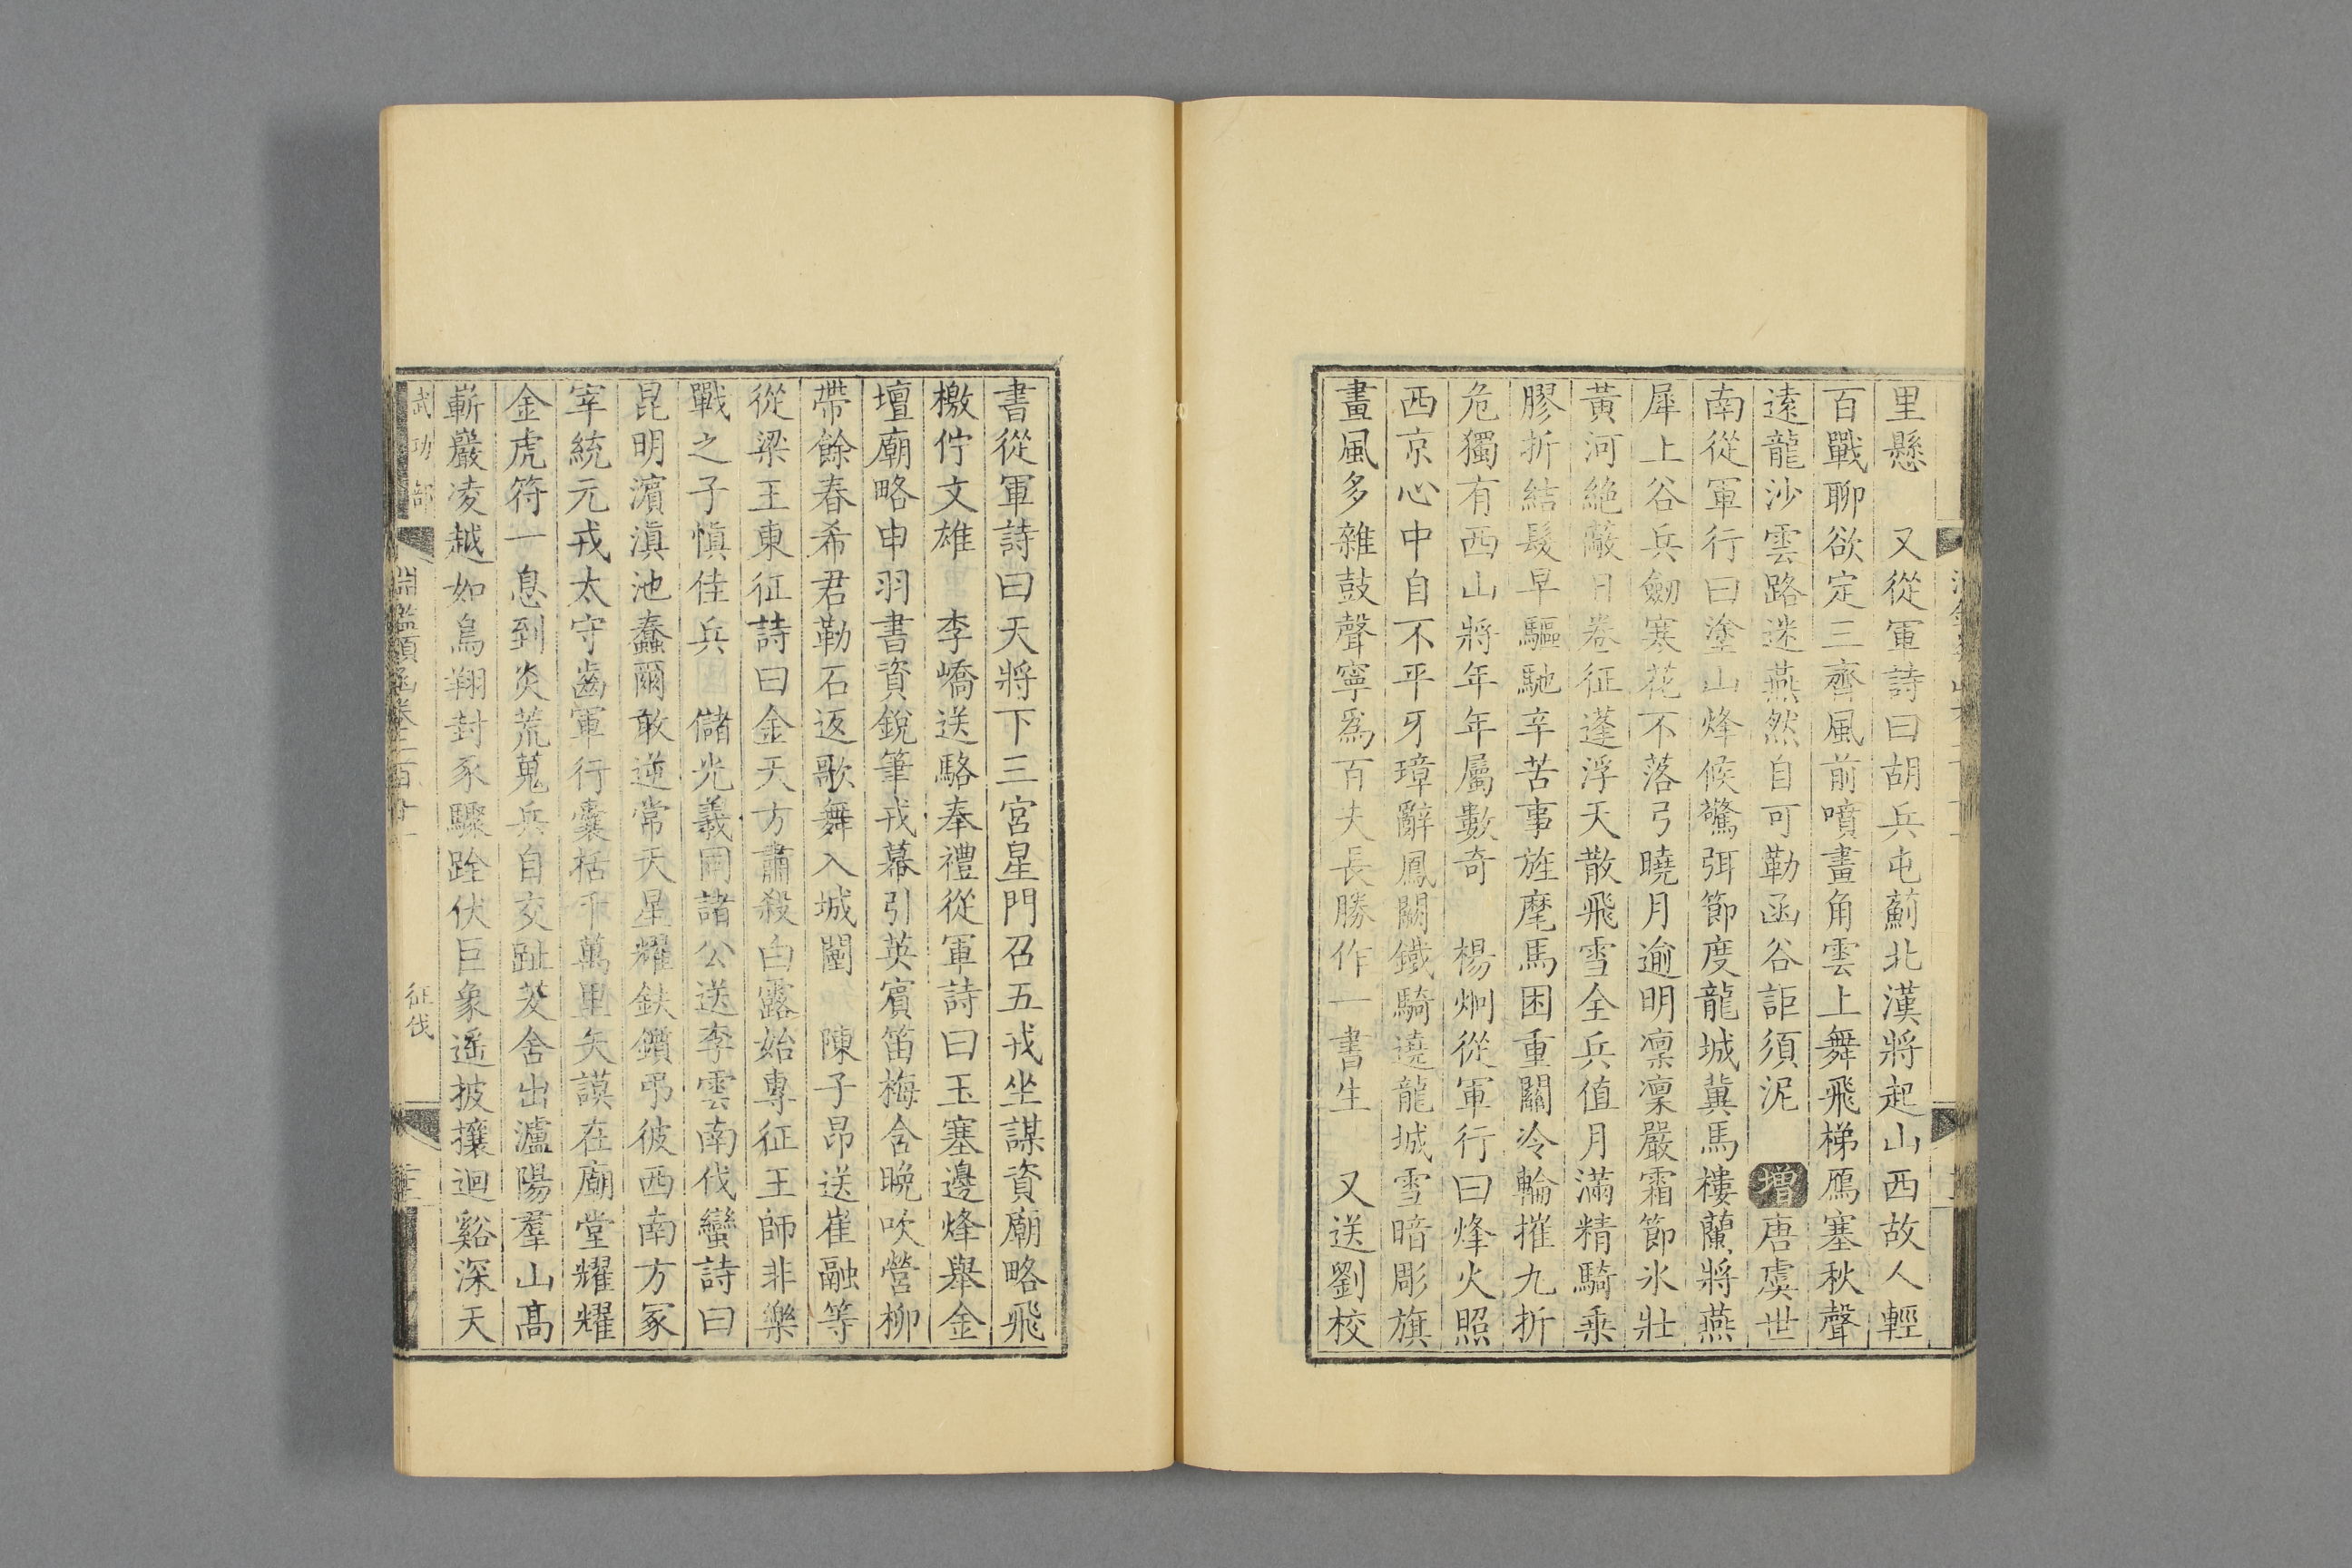 里懸　又從軍詩曰胡兵屯薊北漢將起山西故人輕
百戰聊欲定三齊風前噴畫角雲上舞飛梯鴈塞秋聲
遠龍沙雲路迷燕然自可勒函谷詎須泥　增唐虞世
南從軍行曰塗山烽候驚弭節度龍城冀馬樓蘭將燕
犀上谷兵劒寒花不落弓曉月逾明凛凛嚴霜節冰壯
黃河絶蔽日卷征蓬浮天散飛雪全兵值月滿精騎乘
膠折結髮早驅馳辛苦事旌麾馬困重關冷輪摧九折
危獨有西山將年年屬數奇　楊炯從軍行曰烽火照
西京心中自不平牙璋辭鳳闕鐵騎遶龍城雪暗彫旗
畫風多雜鼓聲寧爲百夫長勝作一書生　又送劉校
書從軍詩曰天將下三宮星門召五戎坐謀資廟略飛
檄佇文雄　李嶠送駱奉禮從軍詩曰玉塞邊烽舉金
壇廟略申羽書資銳筆戎幕引英賓笛梅含晚吹營柳
帶餘春希君勒石返歌舞入城闉　陳子昂送崔融等
從梁王東征詩曰金天方肅殺白露始專征王師非樂
戰之子慎佳兵　儲光羲同諸公送李雲南伐蠻詩曰
昆明濵滇池蠢爾敢逆常天星耀鈇鑕弔彼西南方冢
宰統元戎太守齒軍行囊括千萬里矢謨在廟堂耀耀
金虎符一息到炎荒蒐兵自交趾茇舍出瀘陽羣山高
嶄巖凌越如鳥翔封豕驟跧伏巨象遥披攘迴谿深天
武功部
淵鑑類函卷二百十一
征伐